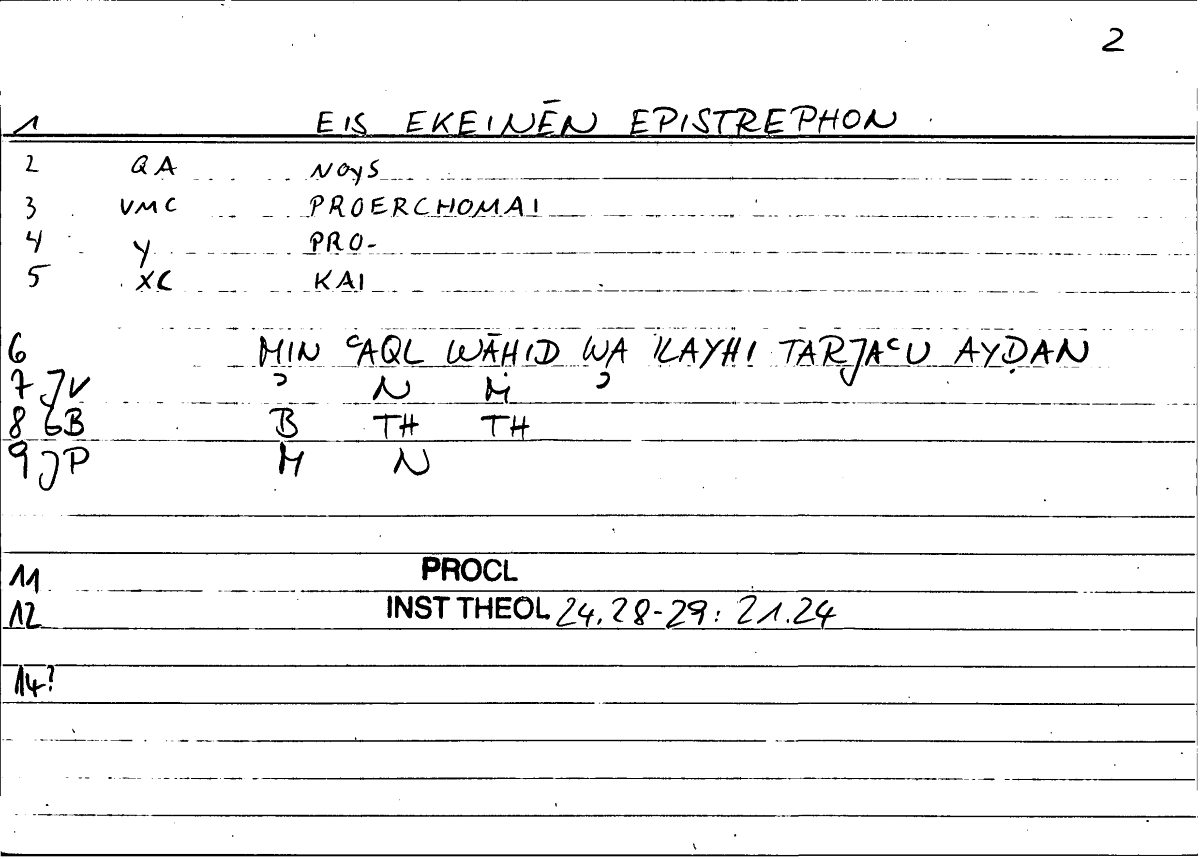 2
1 EIS EKEINĒN EPISTREPHON
2 QA NOyS
3 VMC PROERCHOMAI
4 y PRO-
5 XC KAI
6 MIN ʿAQL WĀḤID WA ʾILAYHI TARJAʿU AYḌAN
7 JV ʾ N M ʾ
8 GB B TH TH
9 JP M N
11 PROCL
12 INST THEOL 24.28-29: 21.24
14?